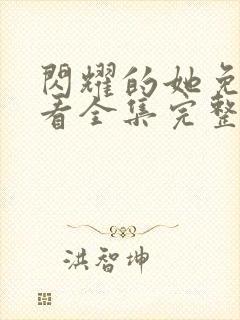 閃耀的她免
看全集完整
洪智坤